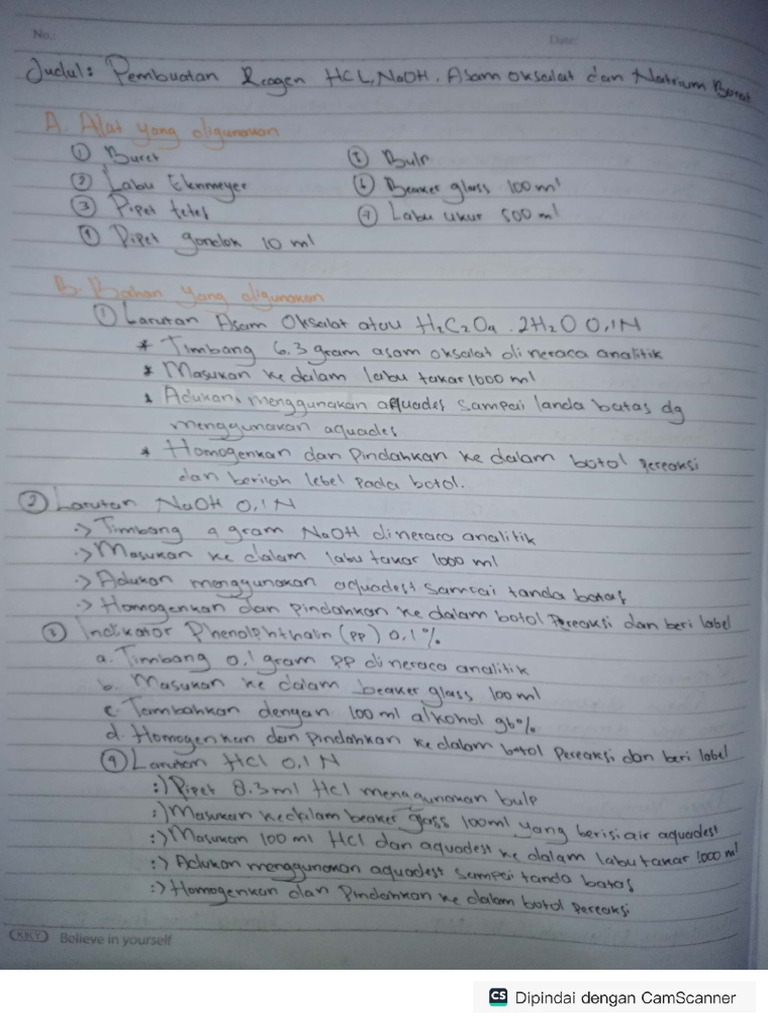 No.:
Date:
Judul: Pembuatan Reagen HCL, NaOH, Asam oksalat dan Natrium Borat
A. Alat yang digunakan
① Buret
⑤ Bulp
② Labu Elenmeyer
⑥ Beaker glass 100 ml
③ Pipet tetes
⑦ Labu ukur 500 ml
④ Pipet gondok 10 ml
B. Bahan yang digunakan
① Larutan Asam Oksalat atau H₂C₂O₄ . 2H₂O 0,1N
* Timbang 6.3 gram asam oksalat di neraca analitik
* Masukan ke dalam labu takar 1000 ml
* Adukan, menggunakan aquades sampai tanda batas dg
menggunakan aquades
* Homogenkan dan Pindahkan ke dalam botol pereaksi
dan berilah lebel pada botol.
② Larutan NaOH 0,1N
:> Timbang 4 gram NaOH di neraca analitik
:> Masukan ke dalam labu takar 1000 ml
:> Adukan menggunakan aquadest sampai tanda batas
:> Homogenkan dan pindahkan ke dalam botol Pereaksi dan beri label
③ Indikator Phenolphthalin (PP) 0,1%
a. Timbang 0,1 gram PP di neraca analitik
b. Masukan ke dalam beaker glass 100 ml
c. Tambahkan dengan 100 ml alkohol 96%
d. Homogenkan dan pindahkan ke dalam botol pereaksi dan beri label
④ Larutan HCl 0,1 N
:) Pipet 8.3 ml HCl menggunakan bulp
:) Masukan kedalam beaker glass 100 ml yang berisi air aquadest
:) Masukan 100 ml HCl dan aquadest ke dalam labu takar 1000 ml
:) Adukan menggunakan aquadest sampai tanda batas
:) Homogenkan dan Pindahkan ke dalam botol pereaksi
KIKY Believe in yourself
CS Dipindai dengan CamScanner